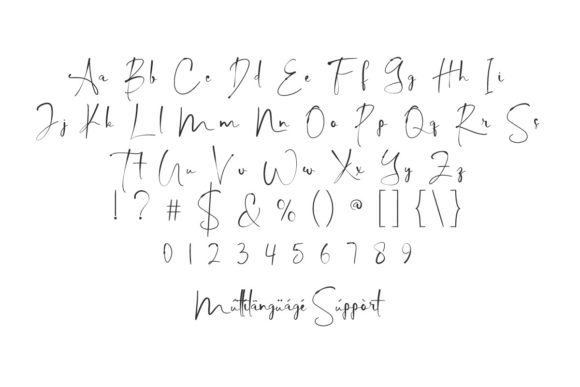 Aa Bb Cc Dd Ee Ff Gg Hh Ii
Jj Kk Ll Mm Nn Oo Pp Qq Rr Ss
Tt Uu Vv Ww Xx Yy Zz
! ? # $ & % () @ [] {\}
0 1 2 3 4 5 6 7 8 9
Mũltĩlãngüágé Súppòrt